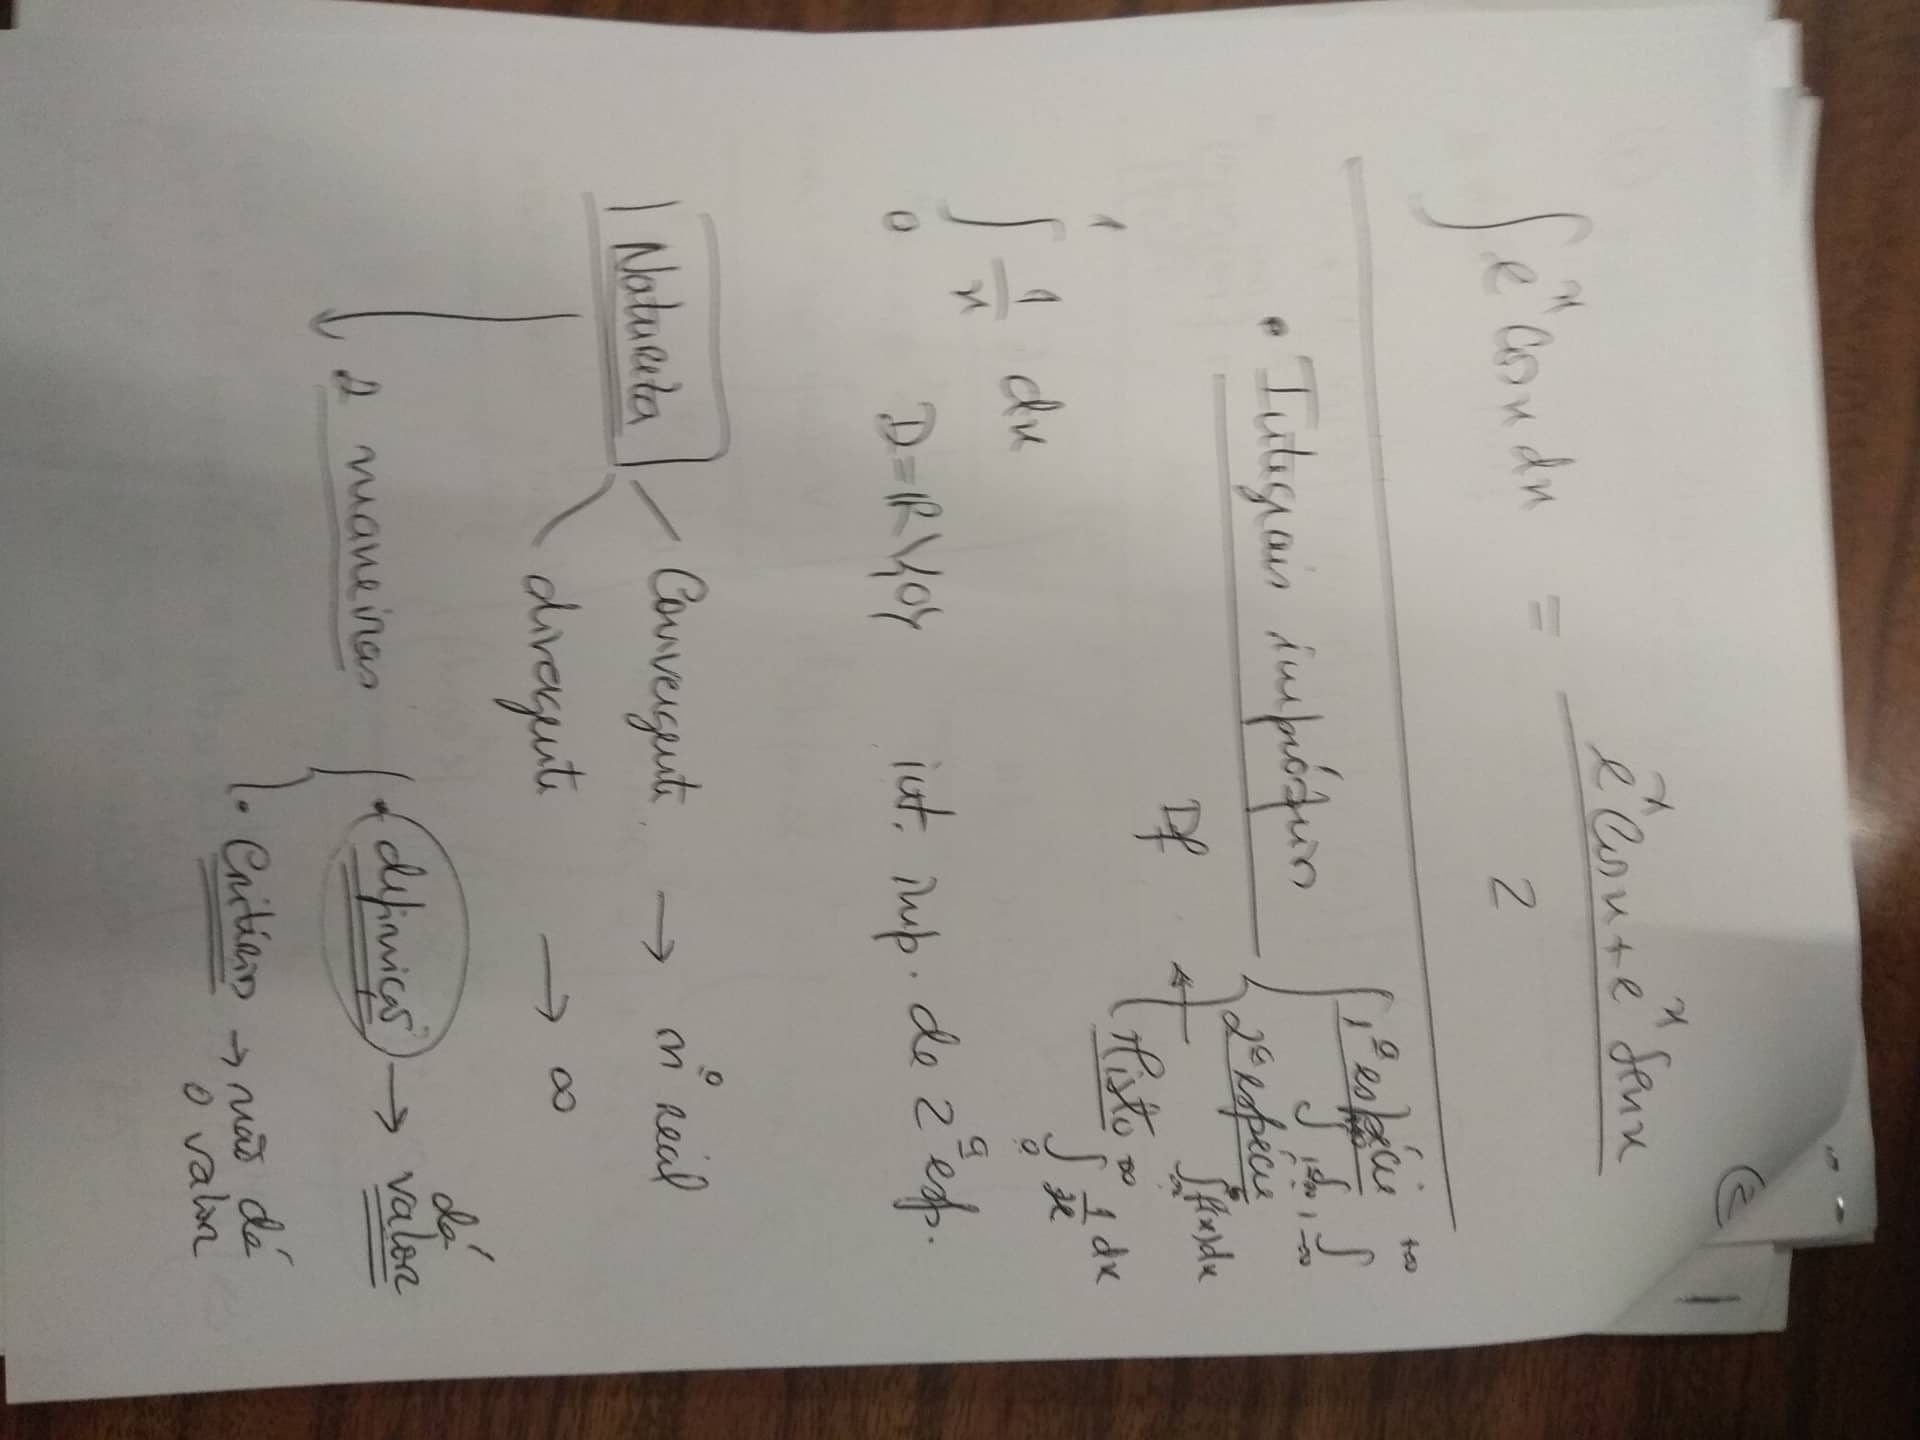 2
∫ eˣ cos x dx = (eˣ cos x + eˣ sen x) / 2
• Integrais impróprios
1ª espécie
∫ , ∫₋∞ , ∫₋∞^+∞
2ª espécie
∫ₐᵇ f(x)dx
Df ←
Misto
∫₀^∞ 1/x dx
∫₀¹ 1/x dx
D=ℝ\{0} int. imp. de 2ª esp.
Natureza
Convergente → nº real
divergente → ∞
2 maneiras
• definição → dá valor
• Critérios → não dá o valor